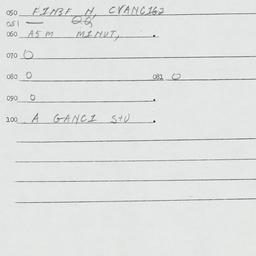 050 FINBF N, CVANC162
051 —
060 ASM MINUT, .
070 O
080 O 081 O
090 O .
100 A GANCI S+U .